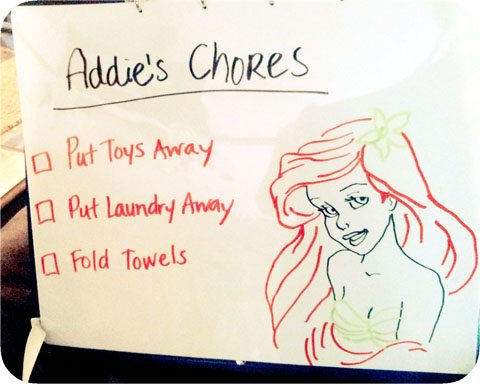 Addie's Chores
Put Toys Away
Put Laundry Away
Fold Towels